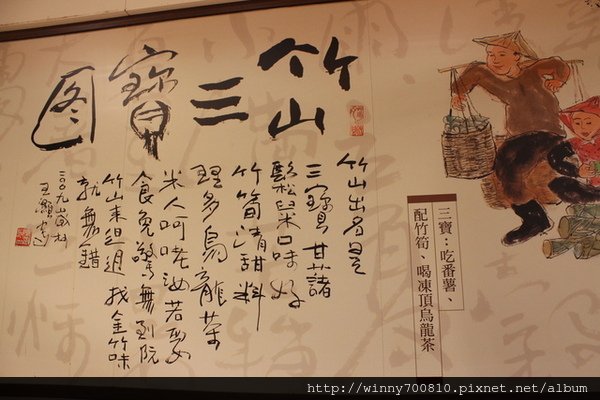 竹山
三寶图
竹山出名是
三寶甘藷
口味好
竹筍清甜料
理多烏龍茶
人呵咾汝若愛
食免驚無到阮
竹山來迌迌找金竹味
就無錯
二〇〇九
三寶：吃番薯、
配竹筍、喝凍頂烏龍茶
http://winny700810.pixnet.net/album